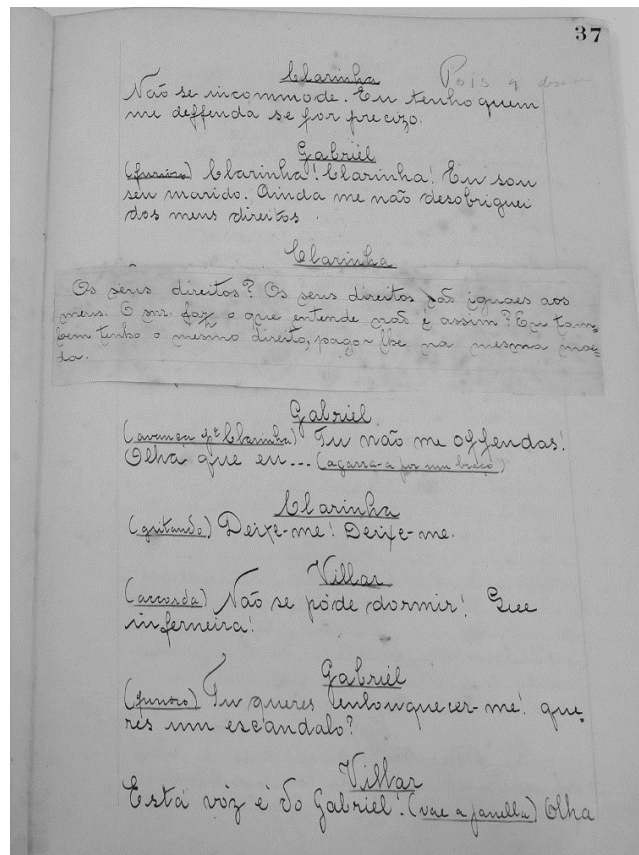 37
Clarinha
Pois q
Não se incommode. Eu tenho quem
me deffenda se for precizo.
Gabriél
(furioso) Clarinha! Clarinha! Eu sou
seu marido. Ainda me não desobriguei
dos meus direitos.
Clarinha
Os seus direitos? Os seus direitos são iguaes aos
meus. O snr. faz o que entende não é assim? Eu tam-
bem tenho o mesmo direito, pagar lhe na mesma moe-
da.
Gabriel
(avança pª Clarinha) Tu não me offendas!
Olha que eu... (agarra-a por um braço)
Clarinha
(gritando) Deixe-me! Deixe-me.
Villar
(accorda) Não se póde dormir! Que
inferneira!
Gabriél
(furioso) Tu queres enlouquecer-me! que-
res um escandalo?
Villar
Esta vóz é do Gabriel! (vae a janella) Olha